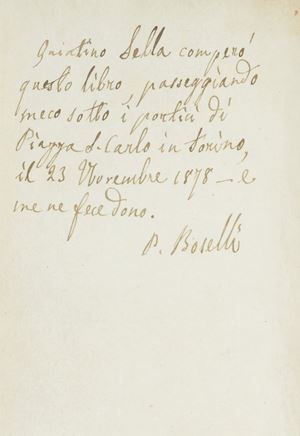 Quintino Sella comperò
questo libro, passeggiando
meco sotto i portici di
Piazza S. Carlo in Torino,
il 23 Novembre 1878 – e
me ne fece dono.
P. Boselli